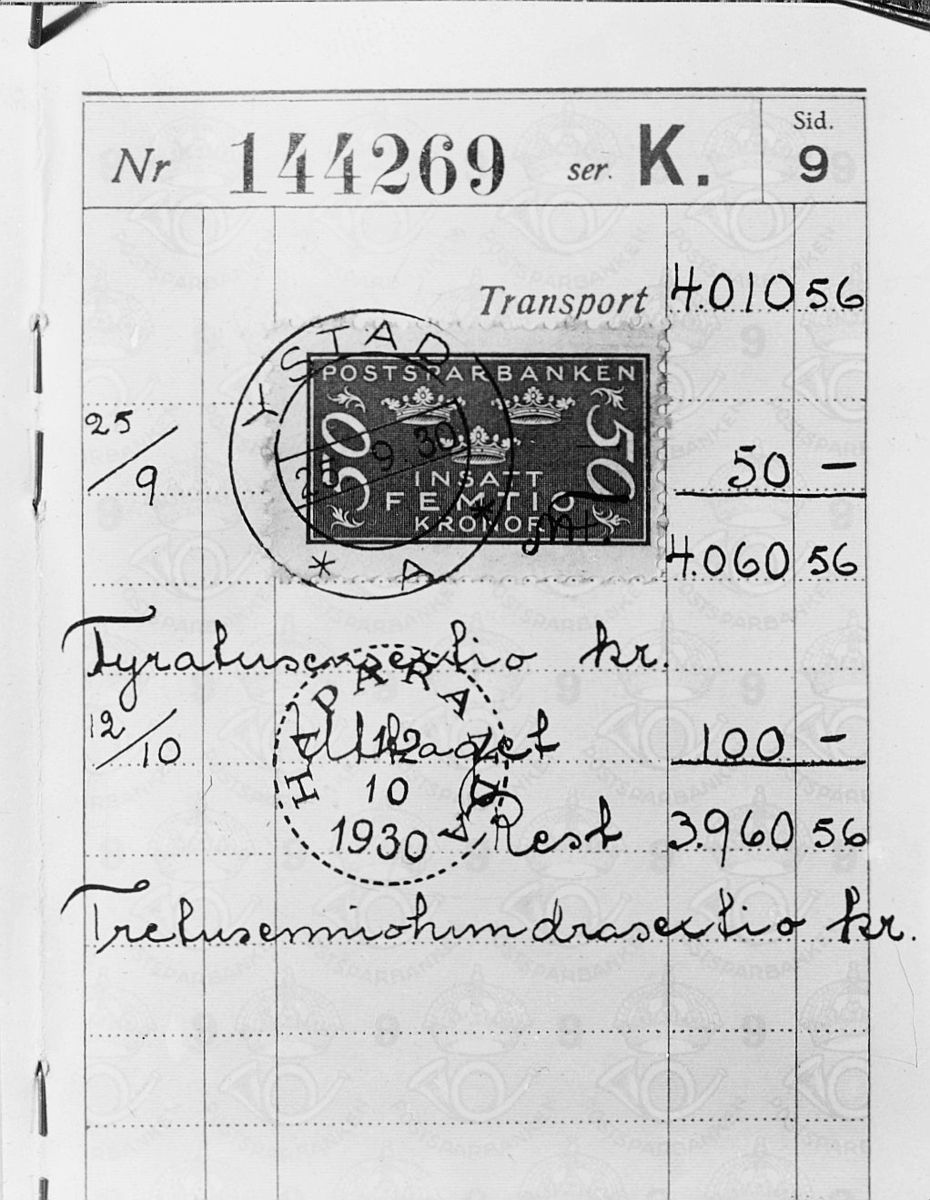 Nr 144269 ser. K. Sid. 9
Transport 4.010 56
YSTAD
POSTSPARBANKEN
50 50
25 9 30
25/9
INSATT
FEMTIO
KRONOR
50 –
* A *
4.060 56
Fyratusensextio kr.
12/10 Uttaget 100 –
12
10
1930
Rest 3.960 56
Tretusenniohundrasextio kr.